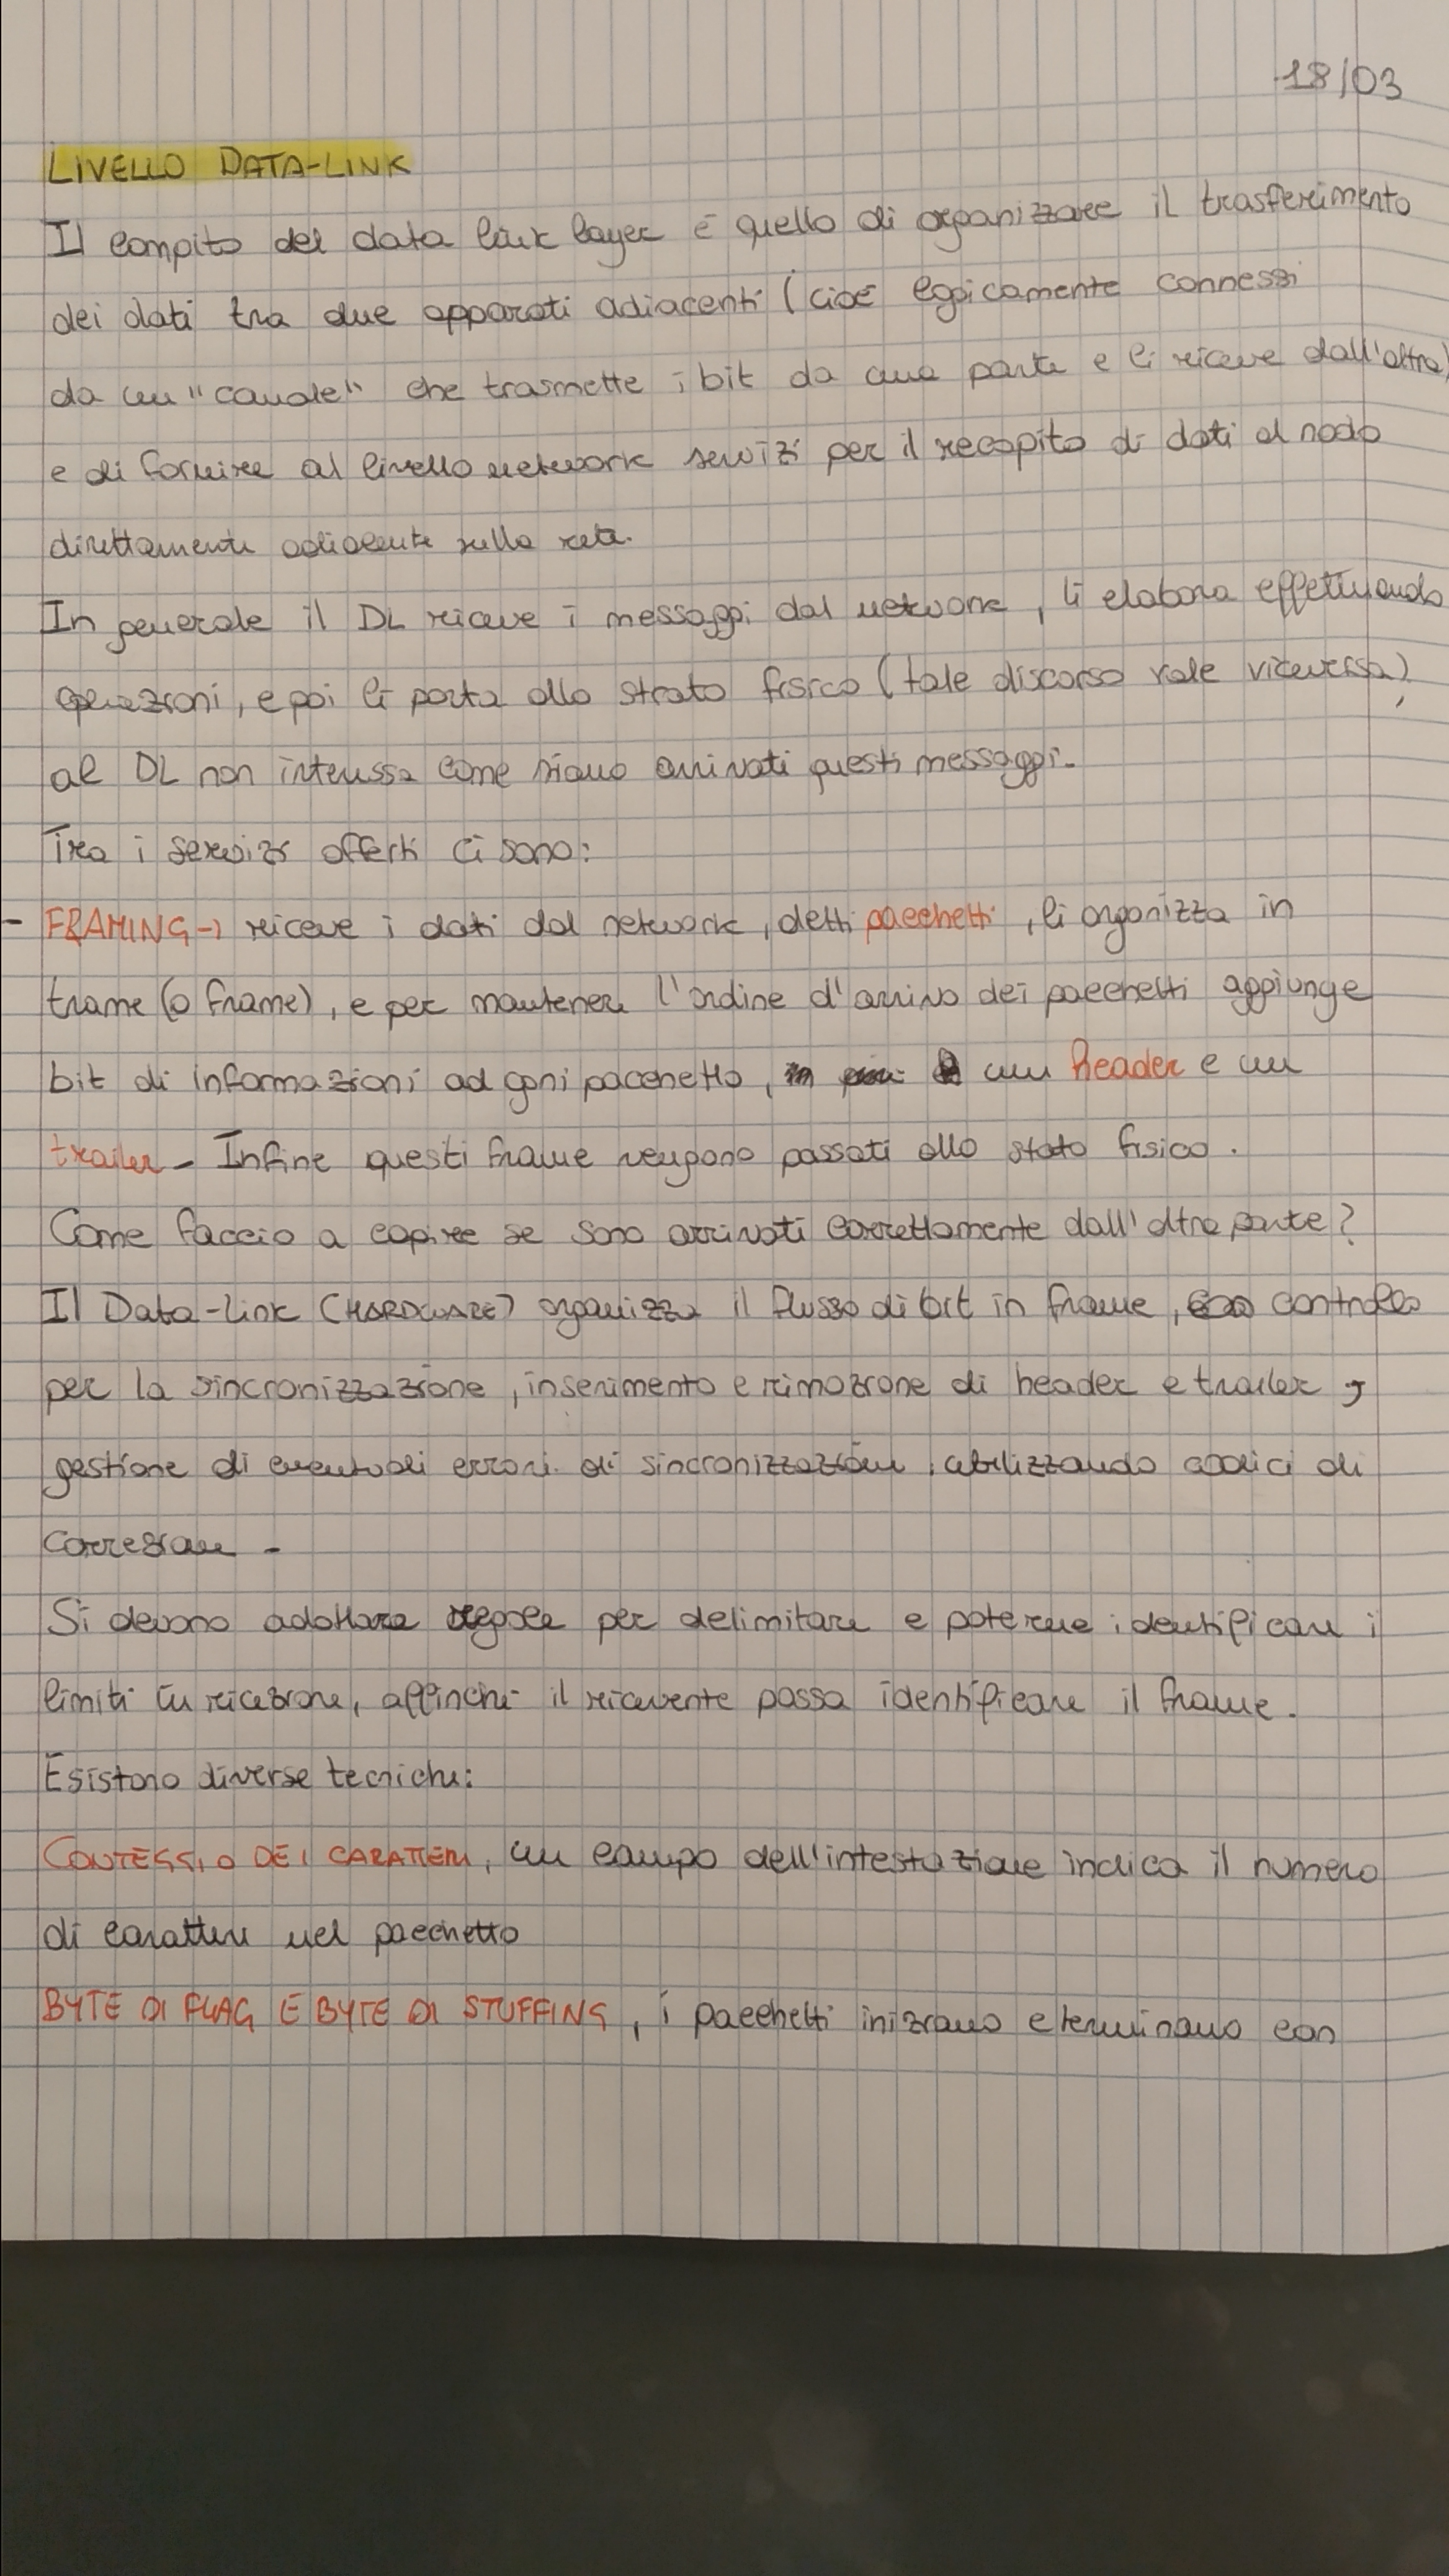 18/03
LIVELLO DATA-LINK
Il compito del data link layer è quello di organizzare il trasferimento
dei dati tra due apparati adiacenti (cioè logicamente connessi
da un "canale" che trasmette i bit da una parte e li riceve dall'altra)
e di fornire al livello network servizi per il recapito di dati al nodo
direttamente adiacente sulla rete.
In generale il DL riceve i messaggi dal network, li elabora effettuando
operazioni, e poi li porta allo strato fisico (tale discorso vale viceversa),
al DL non interessa come siano arrivati questi messaggi.
Tra i servizi offerti ci sono:
- FRAMING → riceve i dati dal network, detti pacchetti, li organizza in
trame (o frame), e per mantenere l'ordine d'arrivo dei pacchetti aggiunge
bit di informazioni ad ogni pacchetto, un header e un
trailer - Infine questi frame vengono passati allo stato fisico.
Come faccio a capire se sono arrivati correttamente dall'altra parte?
Il Data-link (HARDWARE) organizza il flusso di bit in frame, controllo
per la sincronizzazione, inserimento e rimozione di header e trailer,
gestione di eventuali errori di sincronizzazione, utilizzando codici di
correzione -
Si devono adottare regole per delimitare e poterne identificare i
limiti in ricezione, affinché il ricevente possa identificare il frame.
Esistono diverse tecniche:
CONTEGGIO DEI CARATTERI, un campo dell'intestazione indica il numero
di caratteri nel pacchetto
BYTE DI FLAG E BYTE DI STUFFING, i pacchetti iniziano e terminano con